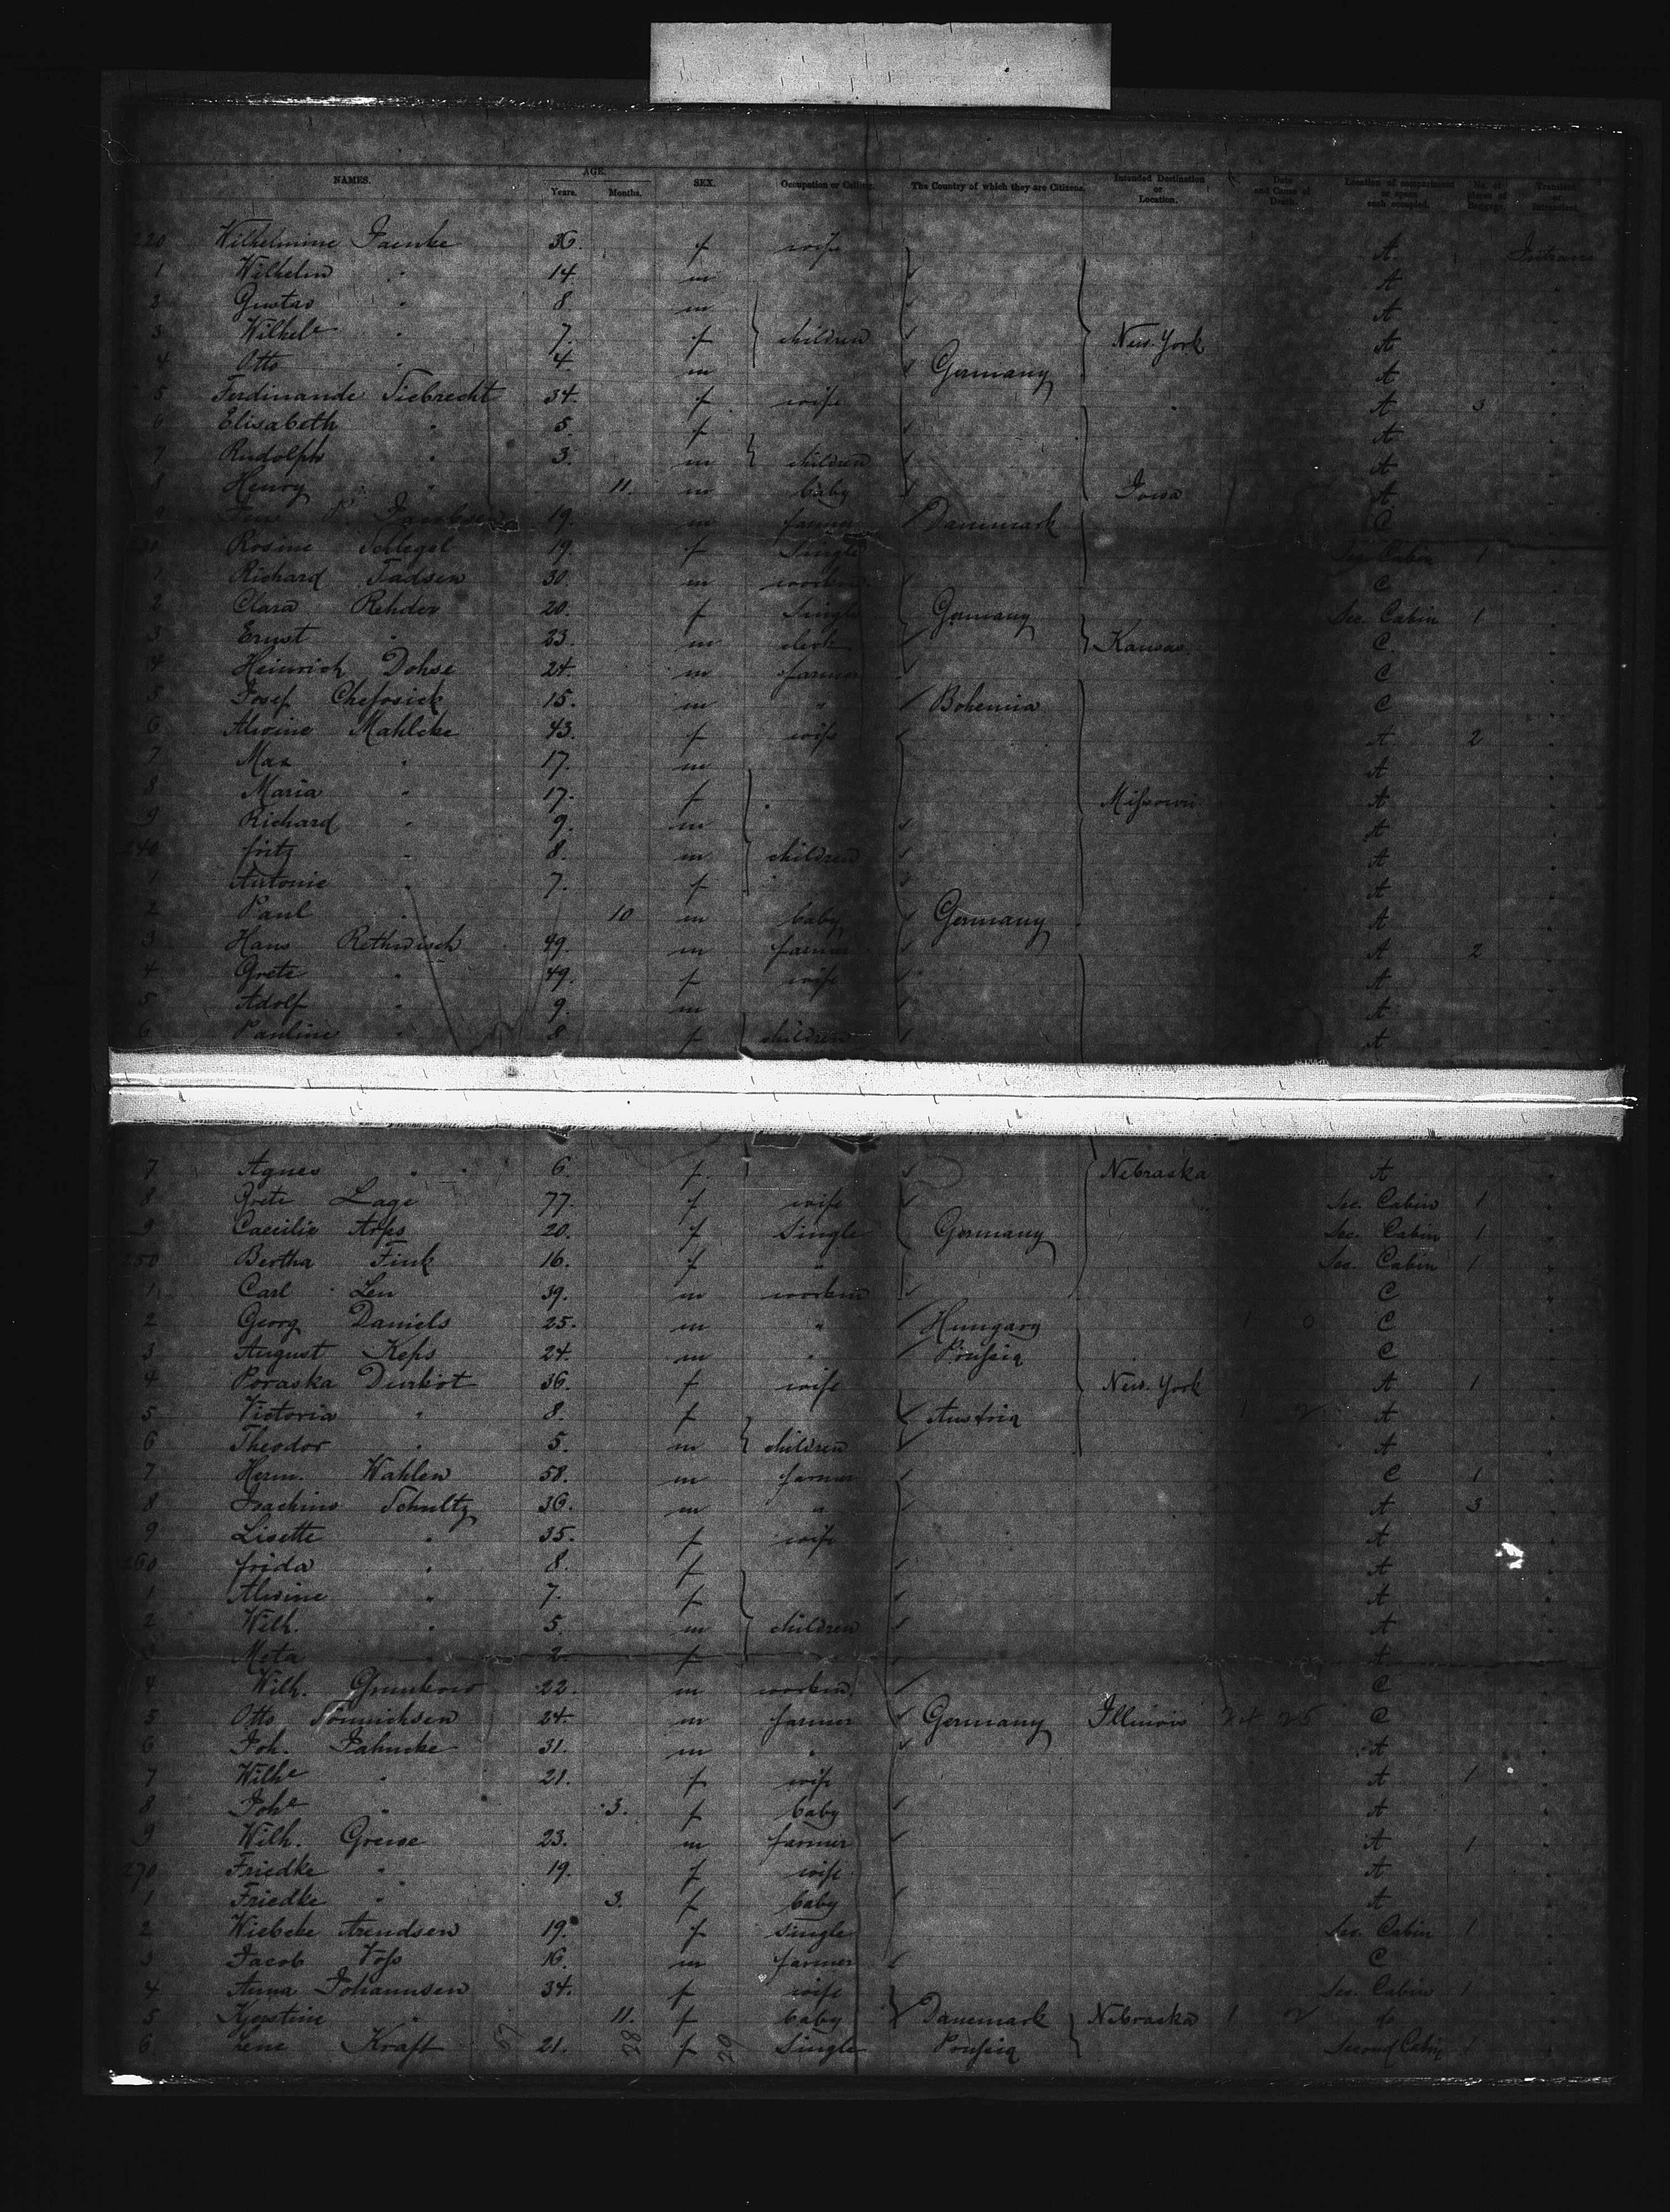 NAMES. AGE. Years. Months. SEX. Occupation or Calling. The Country of which they are Citizens. Intended Destination or Location. Date and Cause of Death. Location of compartment or space each occupied. No. of pieces of Baggage. Transient or
220 Wilhelmine 36. f wife A.
1 Wilhelm " 14. m A
2 Gustav " 8 m A
3 Wilhel^e " 7. f children New-York A
4 Otto " 4. m Germany A
5 Ferdinande Siebrecht 34. f wife " A 3
6 Elisabeth " 5. f A
7 Rudolph " 3. m children A
8 Henry " 11. m baby Iowa A
9 19. m farmer Danemark C
230 Rosine Schlegel 19. f Single Sec. Cabin 1
1 Richard Tadsen 30. m C
2 Clara Rehder 20. f Single Germany Sec. Cabin 1
3 Ernst " 23. m clerk Kansas C.
4 Heinrich Dohse 24. m farmer C
5 Josef 15. m " Bohemia C
6 Alwine Mahlcke 43. f wife A 2
7 Max " 17. m A
8 Maria " 17. f Missouri A
9 Richard " 9. m A
240 fritz " 8. m children A
1 Antonie " 7. f A
2 Paul " 10 m baby Germany A
3 Hans Rethwisch 49. m farmer A 2
4 Grete " 49. f wife A
5 Adolf " 9. m A
6 Pauline " 8 f children A
7 Agnes " 6. f Nebraska A
8 Grete Lage 77. f wife " Sec. Cabin 1
9 Caecilie Arps 20. f Single Germany Sec. Cabin 1
250 Bertha Fink 16. f " Sec. Cabin 1
1 Carl Leu 39. m C
2 Georg Daniels 25. m " Hungary 1 0 C
3 August Keps 24. m " Prussia C
4 Poraska Durkot 36. f wife New-York A 1
5 Victoria " 8. f Austria 1 2 A
6 Theodor " 5. m children A
7 Herm. Wahlen 58. m farmer C 1
8 Joachim Schultz 36. m " A 3
9 Lisette " 35. f wife A
260 frida " 8. f A
1 Alwine " 7. f A
2 Wilh. " 5. m children A
3 Meta 2. f A
4 Wilh. Grunkow 22. m C
5 Otto Tönnichsen 24. m farmer Germany Illinois 24 25 C
6 Joh. Jahncke 31. m " A
7 Wilh^e " 21. f wife A 1
8 Joh^e " 3. f baby A
9 Wilh. Greese 23. m farmer A 1
270 Friedke " 19. f wife A
1 Friedke " 3. f baby A
2 Wiebcke Arendsen 19. f Single Sec. Cabin 1
3 Jacob Voss 16. m farmer C
4 Anna Johannsen 34. f wife Sec. Cabin 1
5 Kjerstine " 11. f baby Danemark Nebraska 1 2 do
6 Lene Kraft 21. f Single Prussia Second Cabin 1
28 29